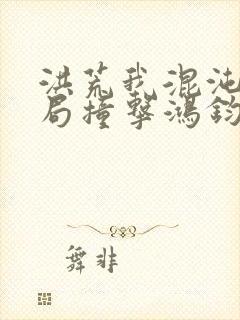 洪荒我混沌
局撞擊鴻鈞
舞非